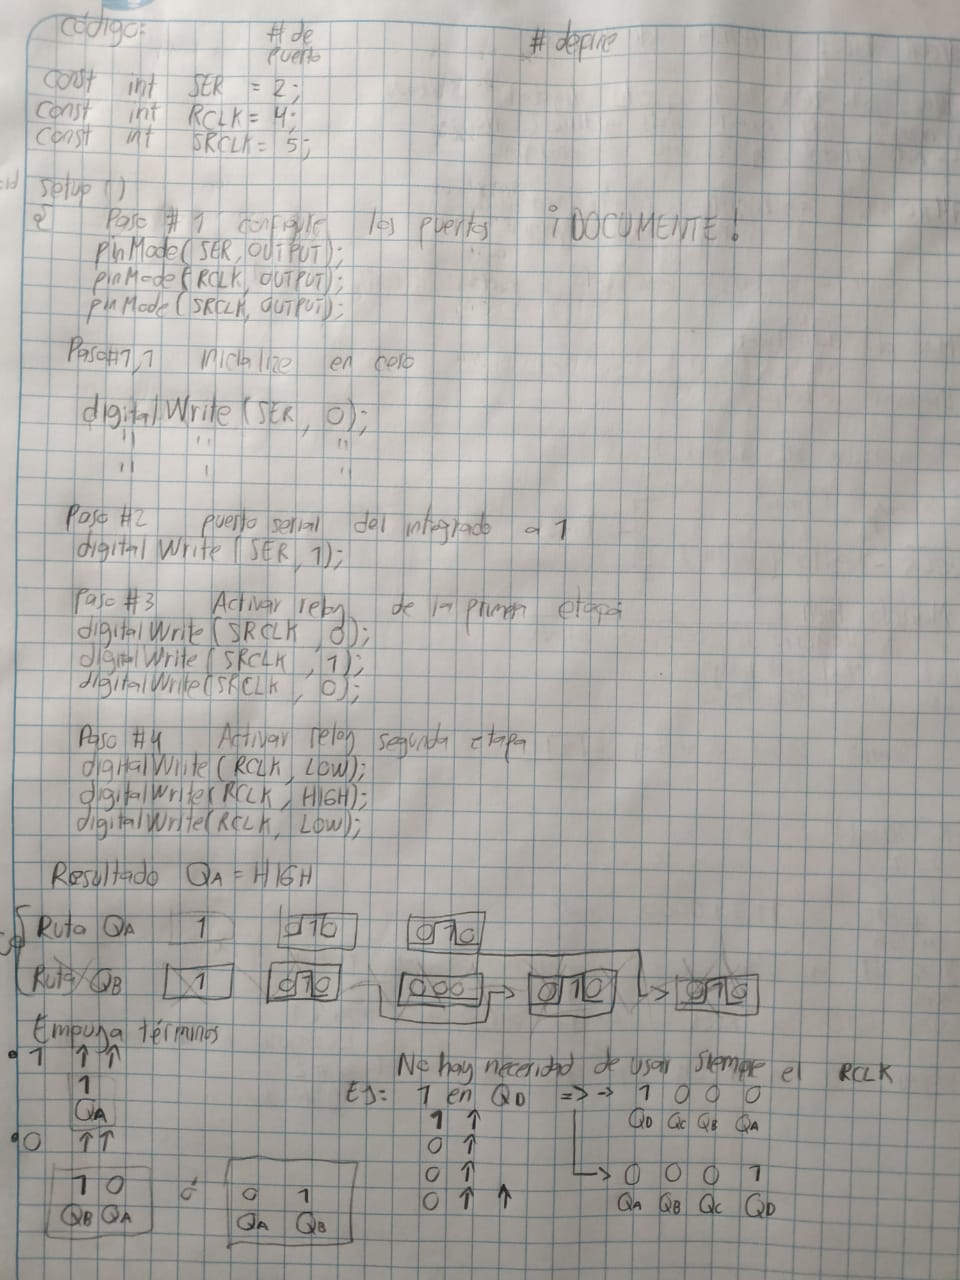 código: # de puerto # define
const int SER = 2;
const int RCLK = 4;
const int SRCLK = 5;
setup ()
{ Paso # 1 configure los puertos ¡DOCUMENTE!
pinMode(SER, OUTPUT);
pinMode(RCLK, OUTPUT);
pinMode(SRCLK, OUTPUT);
Paso#1,1 inicialize en caso
digitalWrite(SER, 0);
" " "
" " "
Paso #2 puerto serial del integrado a 1
digitalWrite(SER, 1);
Paso #3 Activar reloj de la primera etapa
digitalWrite(SRCLK, 0);
digitalWrite(SRCLK, 1);
digitalWrite(SRCLK, 0);
Paso #4 Activar reloj segunda etapa
digitalWrite(RCLK, LOW);
digitalWrite(RCLK, HIGH);
digitalWrite(RCLK, LOW);
Resultado QA = HIGH
Ruta QA 1 010 010
Ruta QB 1 010 000 010 010
Empuja términos
• 1 ↑ ↑
1
QA
• 0 ↑ ↑
1 0 ó 0 1
QB QA QA QB
No hay necesidad de usar siempre el RCLK
EJ: 1 en QD => → 1 0 0 0
QD QC QB QA
1 ↑
0 ↑
0 ↑ → 0 0 0 1
0 ↑ ↑ QA QB QC QD